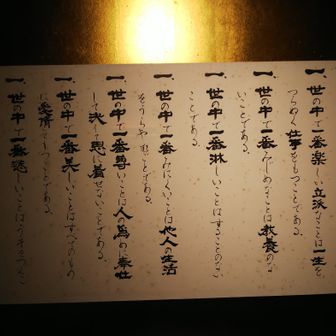 一、世の中で一番楽しい立派なことは一生を
つらぬく仕事をもつことである。
一、世の中で一番みじめなことは教養のな
いことである。
一、世の中で一番淋しいことはすることのない
ことである。
一、世の中で一番みにくいことは他人の生活
をうらやむことである。
一、世の中で一番尊いことは人の為めに奉仕
して決して恩に着せないことである。
一、世の中で一番美しいことはすべてのもの
に愛情をもつことである。
一、世の中で一番悲しいことはうそをつくこ